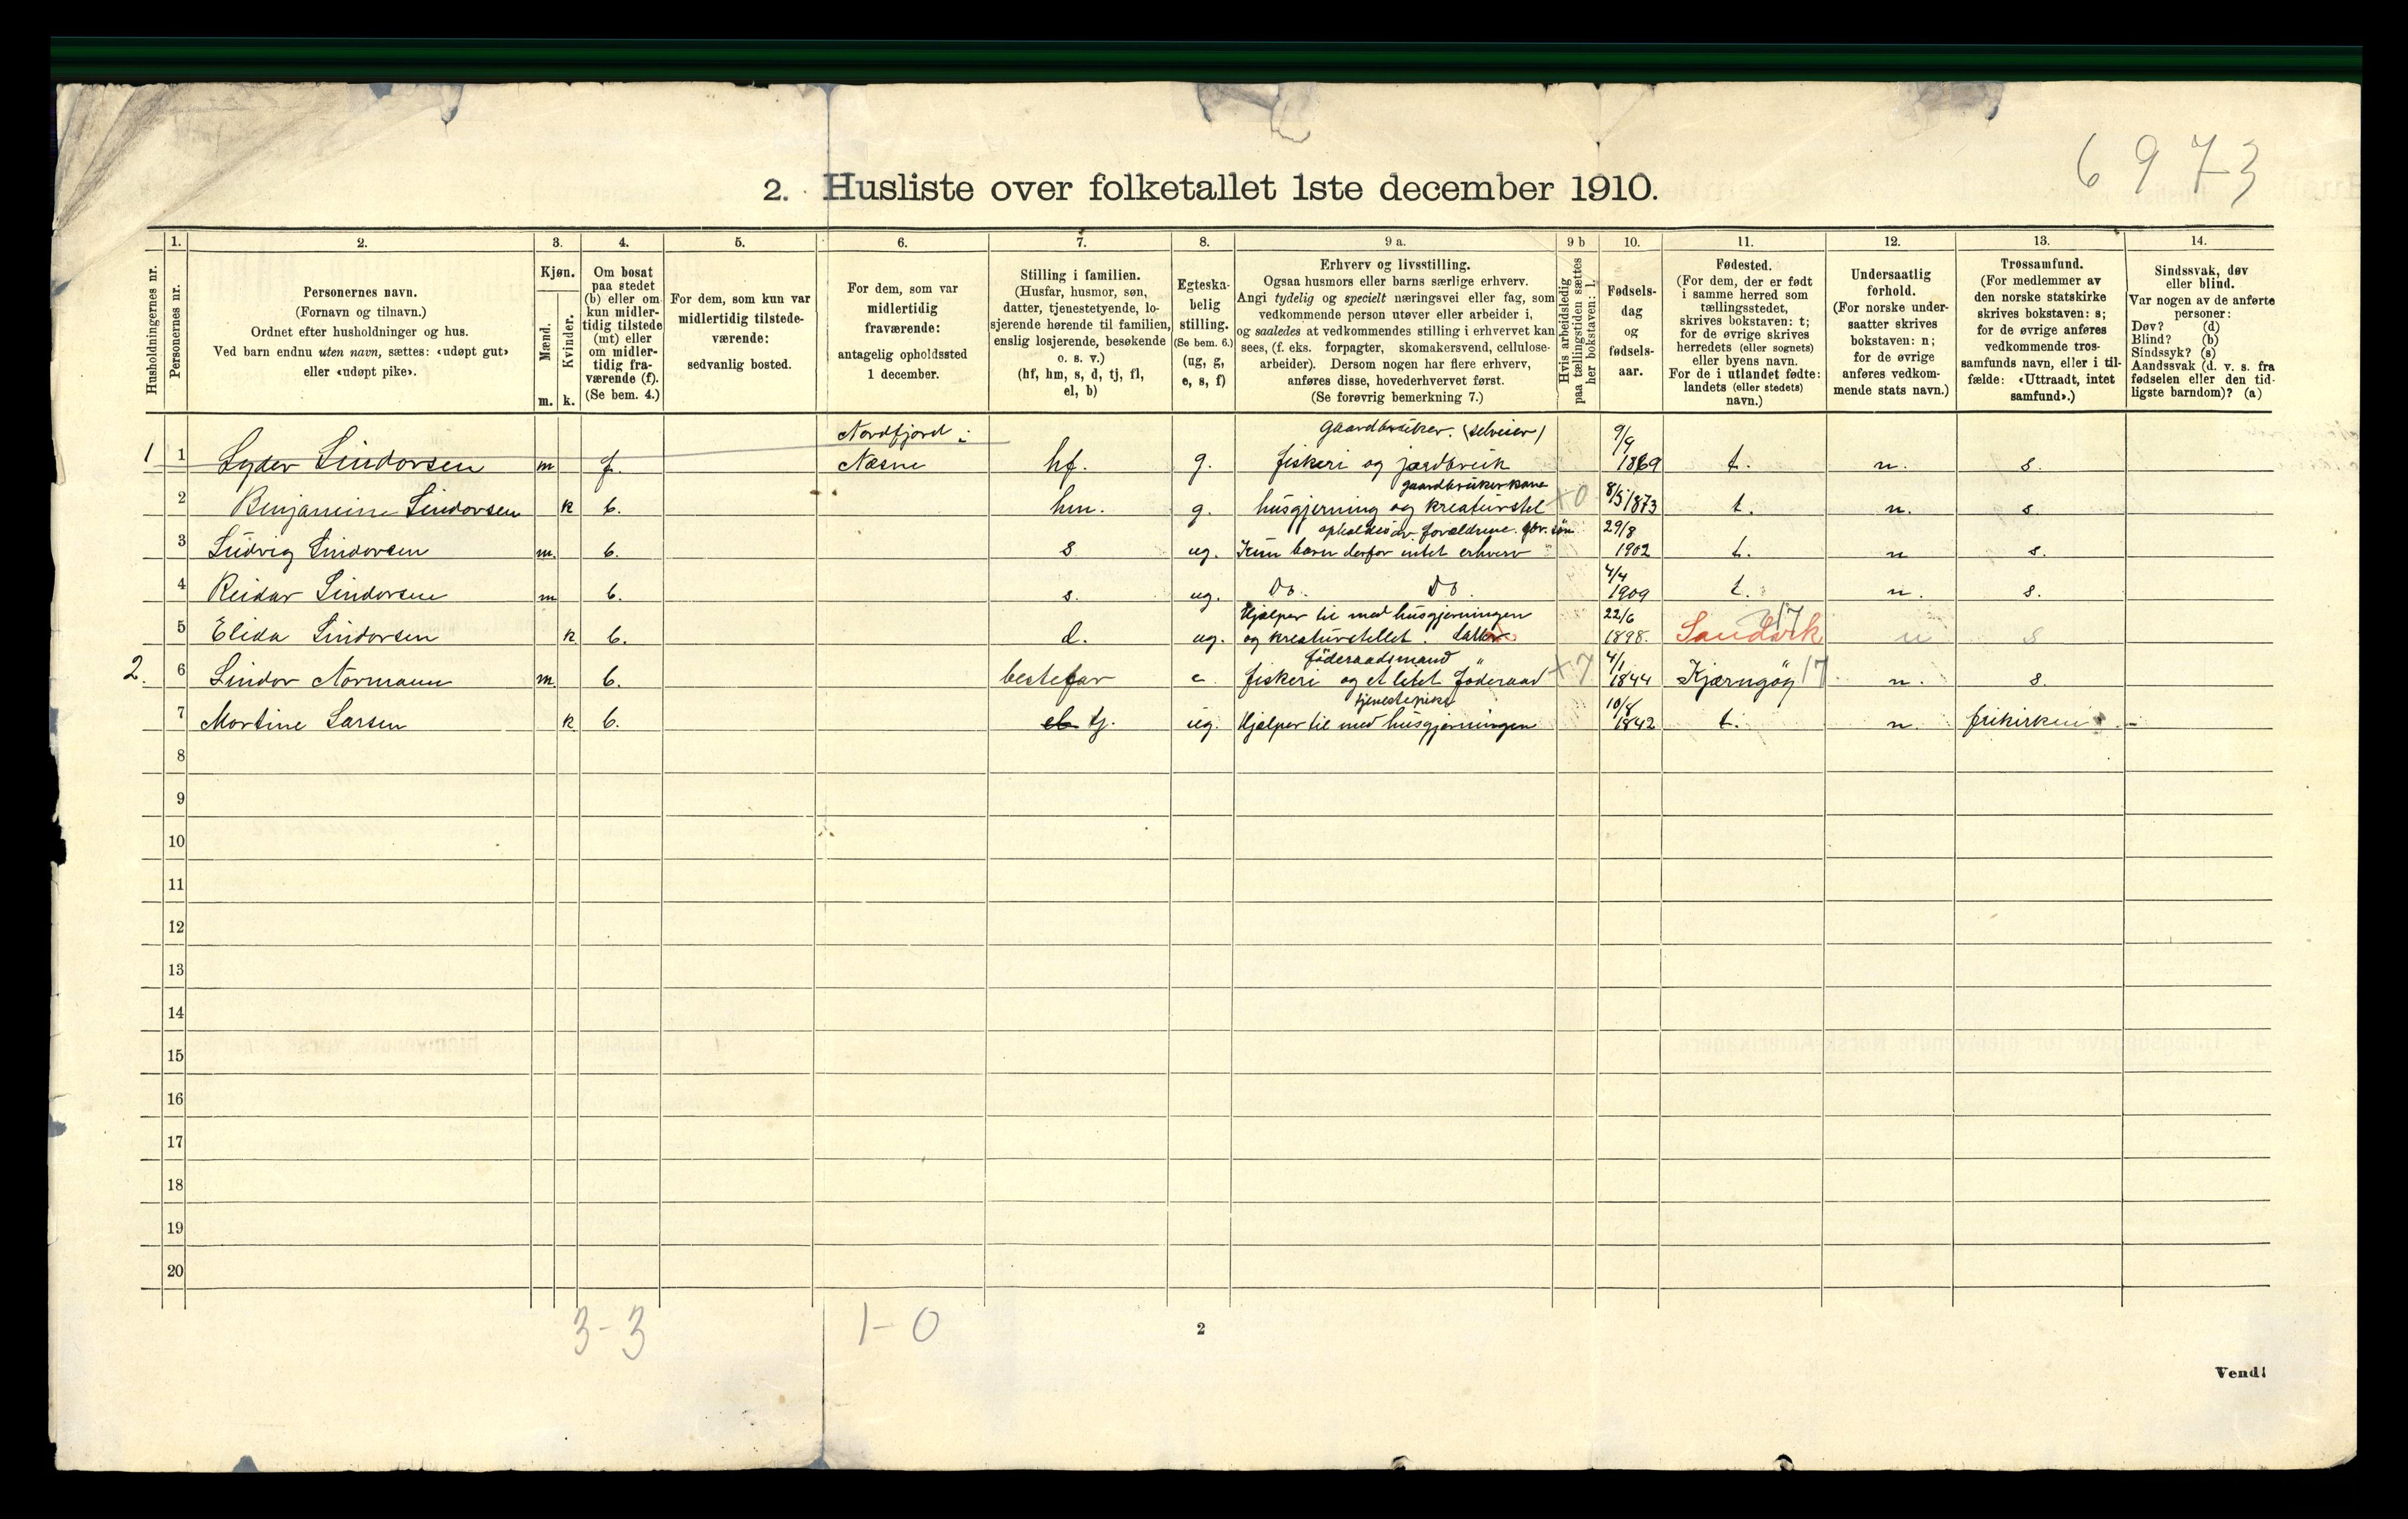 6973
2. Husliste over folketallet 1ste december 1910.
Husholdningernes nr.
1.
Personernes nr.
2.
Personernes navn.
(Fornavn og tilnavn.)
Ordnet efter husholdninger og hus.
Ved barn endnu uten navn, sættes: «udøpt gut»
eller «udøpt pike».
3.
Kjøn.
Mænd.
Kvinder.
m. k.
4.
Om bosat
paa stedet
(b) eller om
kun midler-
tidig tilstede
(mt) eller
om midler-
tidig fra-
værende (f).
(Se bem. 4.)
5.
For dem, som kun var
midlertidig tilstede-
værende:
sedvanlig bosted.
6.
For dem, som var
midlertidig
fraværende:
antagelig opholdssted
1 december.
7.
Stilling i familien.
(Husfar, husmor, søn,
datter, tjenestetyende, lo-
sjerende hørende til familien,
enslig losjerende, besøkende
o. s. v.)
(hf, hm, s, d, tj, fl,
el, b)
8.
Egteska-
belig
stilling.
(Se bem. 6.)
(ug, g,
e, s, f)
9 a.
Erhverv og livsstilling.
Ogsaa husmors eller barns særlige erhverv.
Angi tydelig og specielt næringsvei eller fag, som
vedkommende person utøver eller arbeider i,
og saaledes at vedkommendes stilling i erhvervet kan
sees, (f. eks. forpagter, skomakersvend, cellulose-
arbeider). Dersom nogen har flere erhverv,
anføres disse, hovederhvervet først.
(Se forøvrig bemerkning 7.)
9 b
Hvis arbeidsledig
paa tællingstiden sættes
her bokstaven: l.
10.
Fødsels-
dag
og
fødsels-
aar.
11.
Fødested.
(For dem, der er født
i samme herred som
tællingsstedet,
skrives bokstaven: t;
for de øvrige skrives
herredets (eller sognets)
eller byens navn.
For de i utlandet fødte:
landets (eller stedets)
navn.)
12.
Undersaatlig
forhold.
(For norske under-
saatter skrives
bokstaven: n;
for de øvrige
anføres vedkom-
mende stats navn.)
13.
Trossamfund.
(For medlemmer av
den norske statskirke
skrives bokstaven: s;
for de øvrige anføres
vedkommende tros-
samfunds navn, eller i til-
fælde: «Uttraadt, intet
samfund».)
14.
Sindssvak, døv
eller blind.
Var nogen av de anførte
personer:
Døv? (d)
Blind? (b)
Sindssyk? (s)
Aandssvak (d. v. s. fra
fødselen eller den tid-
ligste barndom)? (a)
Nordfjord i gaardbruker. (selveier) 9/9
1 1 Lyder Lindorsen m f. Næsne hf. g. fiskeri og jordbruk 1869 t. n. s.
gaardbrukerkone
2 Benjamine Lindorsen k b. hm. g. husgjerning og kreaturstel +0 8/5 1873 t. n. s.
opholdes av forældrene. gbr. søn 29/8
3 Ludvig Lindorsen m. b. s ug. Kun barn derfor intet erhverv 1902 t. n s.
4/4
4 Reidar Lindorsen m b. s. ug. Do. Do. 1909 t. n. s.
Hjælper til med husgjerningen 22/6 17
5 Elida Lindorsen k b. d. ug. og kreaturstellet. datter 1898. Sandvik n s
föderaadsmand 4/1
2. 6 Lindor Normann m. b. bestefar e. fiskeri og et litet föderaad +7 1844 Kjærngöy 17 n. s.
tjenestepike 10/8
7 Martine Larsen k b. el tj. ug. Hjælper til med husgjerningen 1842 t. n. frikirken
8
9
10
11
12
13
14
15
16
17
18
19
20
3-3 1-0
2
Vend!